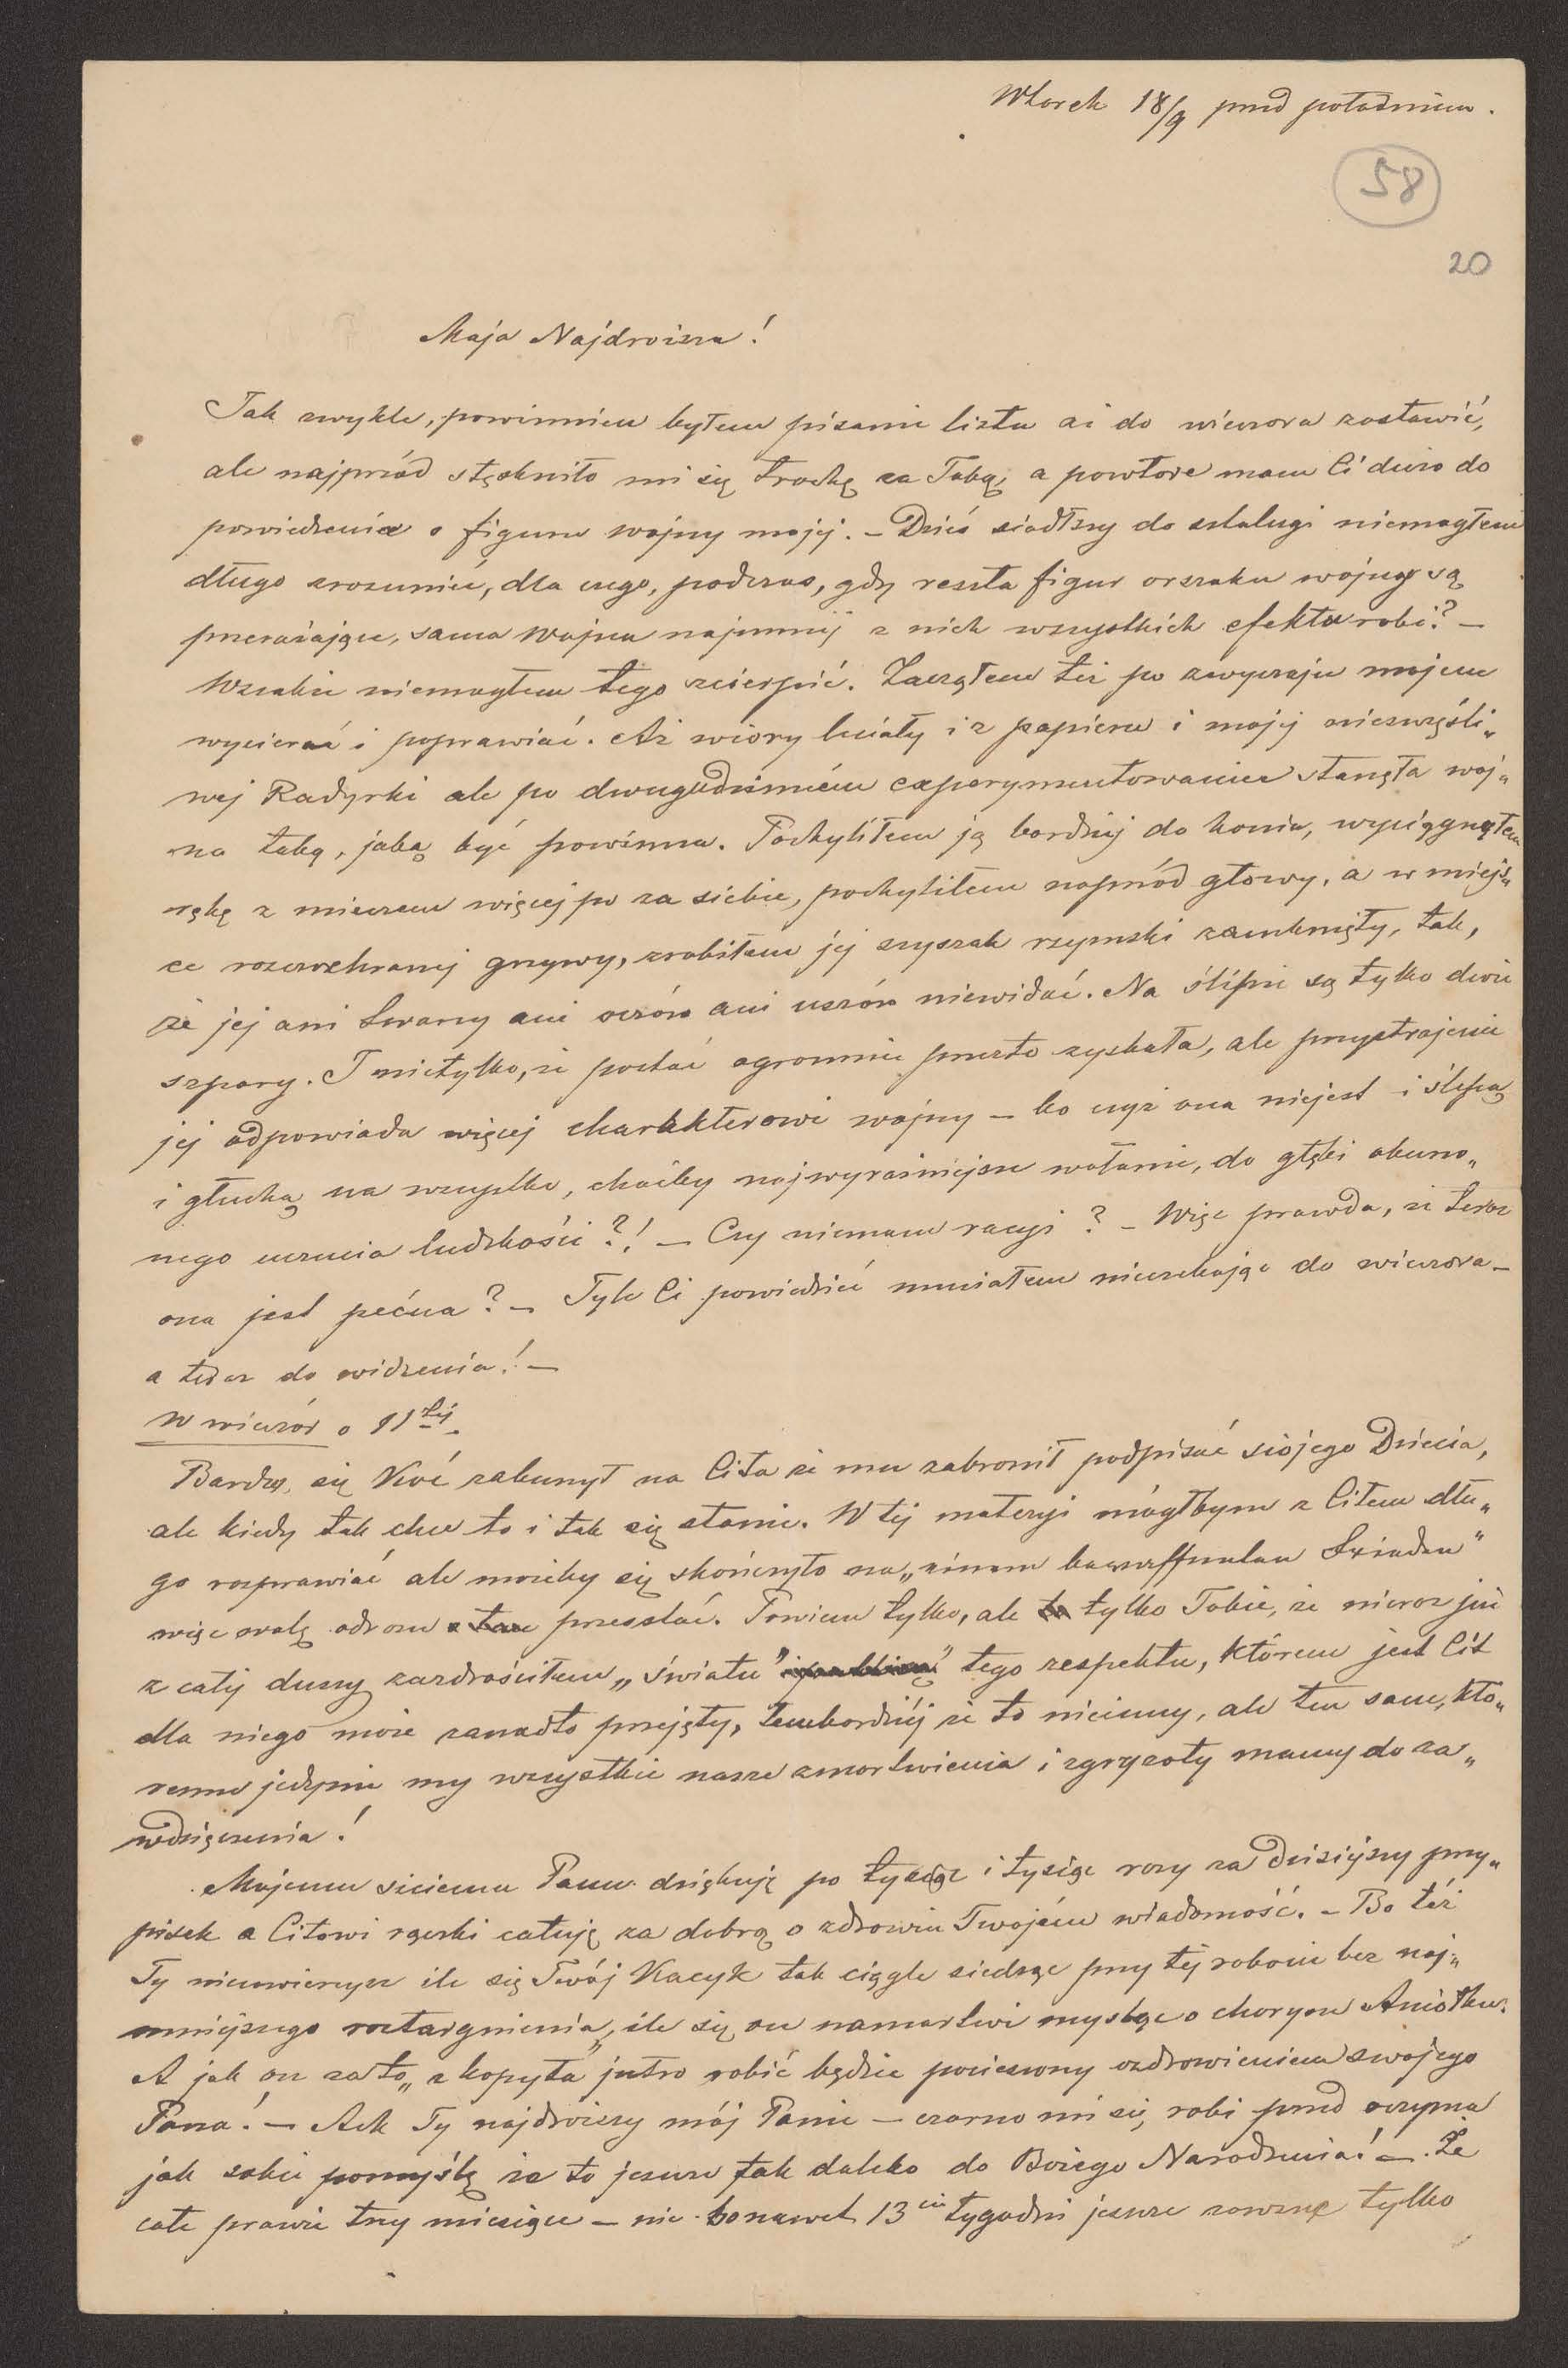 Wtorek 18/9 przed południem.
58
20
Moja Najdroższa!
Jak zwykle, powinnien byłem pisanie listu aż do wieczora zostawić,
ale najprzód stęskniło mi się trochę za Tobą, a powtóre mam Ci dużo do
powiedzenia o figurze wojny mojej. – Dziś siadłszy do sztalugi niemogłem
długo zrozumieć, dla czego, podczas, gdy reszta figur orszaku wojny są
przerażające, sama Wojna najmniej z nich wszystkich efektu robi? –
Wszakże niemogłem tego ścierpieć. Zacząłem też po zwyczaju mojem
wycierać i poprawiać. Aż wióry leciały i z papieru i mojej nieszczęśli„
wej Radyrki ale po dwugodzinném experymentowaniu stanęła woj„
na taką, jaką być powinna. Pochyliłem ją bardziej do konia, wyciągnąłem
rękę z mieczem więcej po za siebie, pochyliłem naprzód głowy, a w miejs„
ce rozczochranej grzywy, zrobiłem jej szyszak rzymski zamknięty, tak,
że jej ani twarzy ani oczów ani uszów niewidać. Na ślepie są tylko dwie
szpary. I nietylko, że postać ogromnie przez to zyskała, ale przystrojenie
jej odpowiada więcej charakterowi wojny – bo czyż ona niejest i ślepą
i głuchą na wszystko, choćby najwyraźniejsze wołanie, do głębi oburzo„
nego uczucia ludzkości?! – Czy niemam racyi? – Więc prawda, że teraz
ona jest pećna? – Tyle Ci powiedzieć musiałem nieczekając do wieczora –
a teraz do widzenia! –
W wieczór o 11tej.
Bardzo się Kić zaburzył na Cita że mu zabronił podpisać siojego Dziecia,
ale kiedy tak chce to i tak się stanie. W tej materyi mógłbym z Citem dłu„
go rozprawiać ale możeby się skończyło na „einem
więc wolę odrazu przestać. Powiem tylko, ale tylko Tobie, że nieraz już
z całej duszy zazdrościłem „światu” tego respektu, którem jest Cit
dla niego może zanadto przejęty, tembardziéj że to nieinny, ale ten sam, któ„
remu jedynie my wszystkie nasze zmartwienia i zgryzoty mamy do za„
wdzięczenia!
Mojemu siciemu Panu dziękuję po tysiąc i tysiąc razy za dzisiejszy przy„
pisek a Citowi rączki całuję za dobrą o zdrowiu Twojém wiadomość. – Bo też
Ty nieuwierzysz ile się Twój Kacyk tak ciągle siedząc przy tej robocie bez naj„
mniejszego roztargnienia, ile się on namartwi myśląc o chorym Aniołku.
A jak on za to „z kopyta” jutro robić będzie pocieszony ozdrowieniem swojego
Pana! – Ach Ty najdroższy mój Panie – czarno mi się robi przed oczyma
jak sobie pomyślę że to jeszcze tak daleko do Bożego Narodzenia! – Że
całe prawie trzy miesiące – nie bo nawet 13cie tygodni jeszcze zawsze tylko